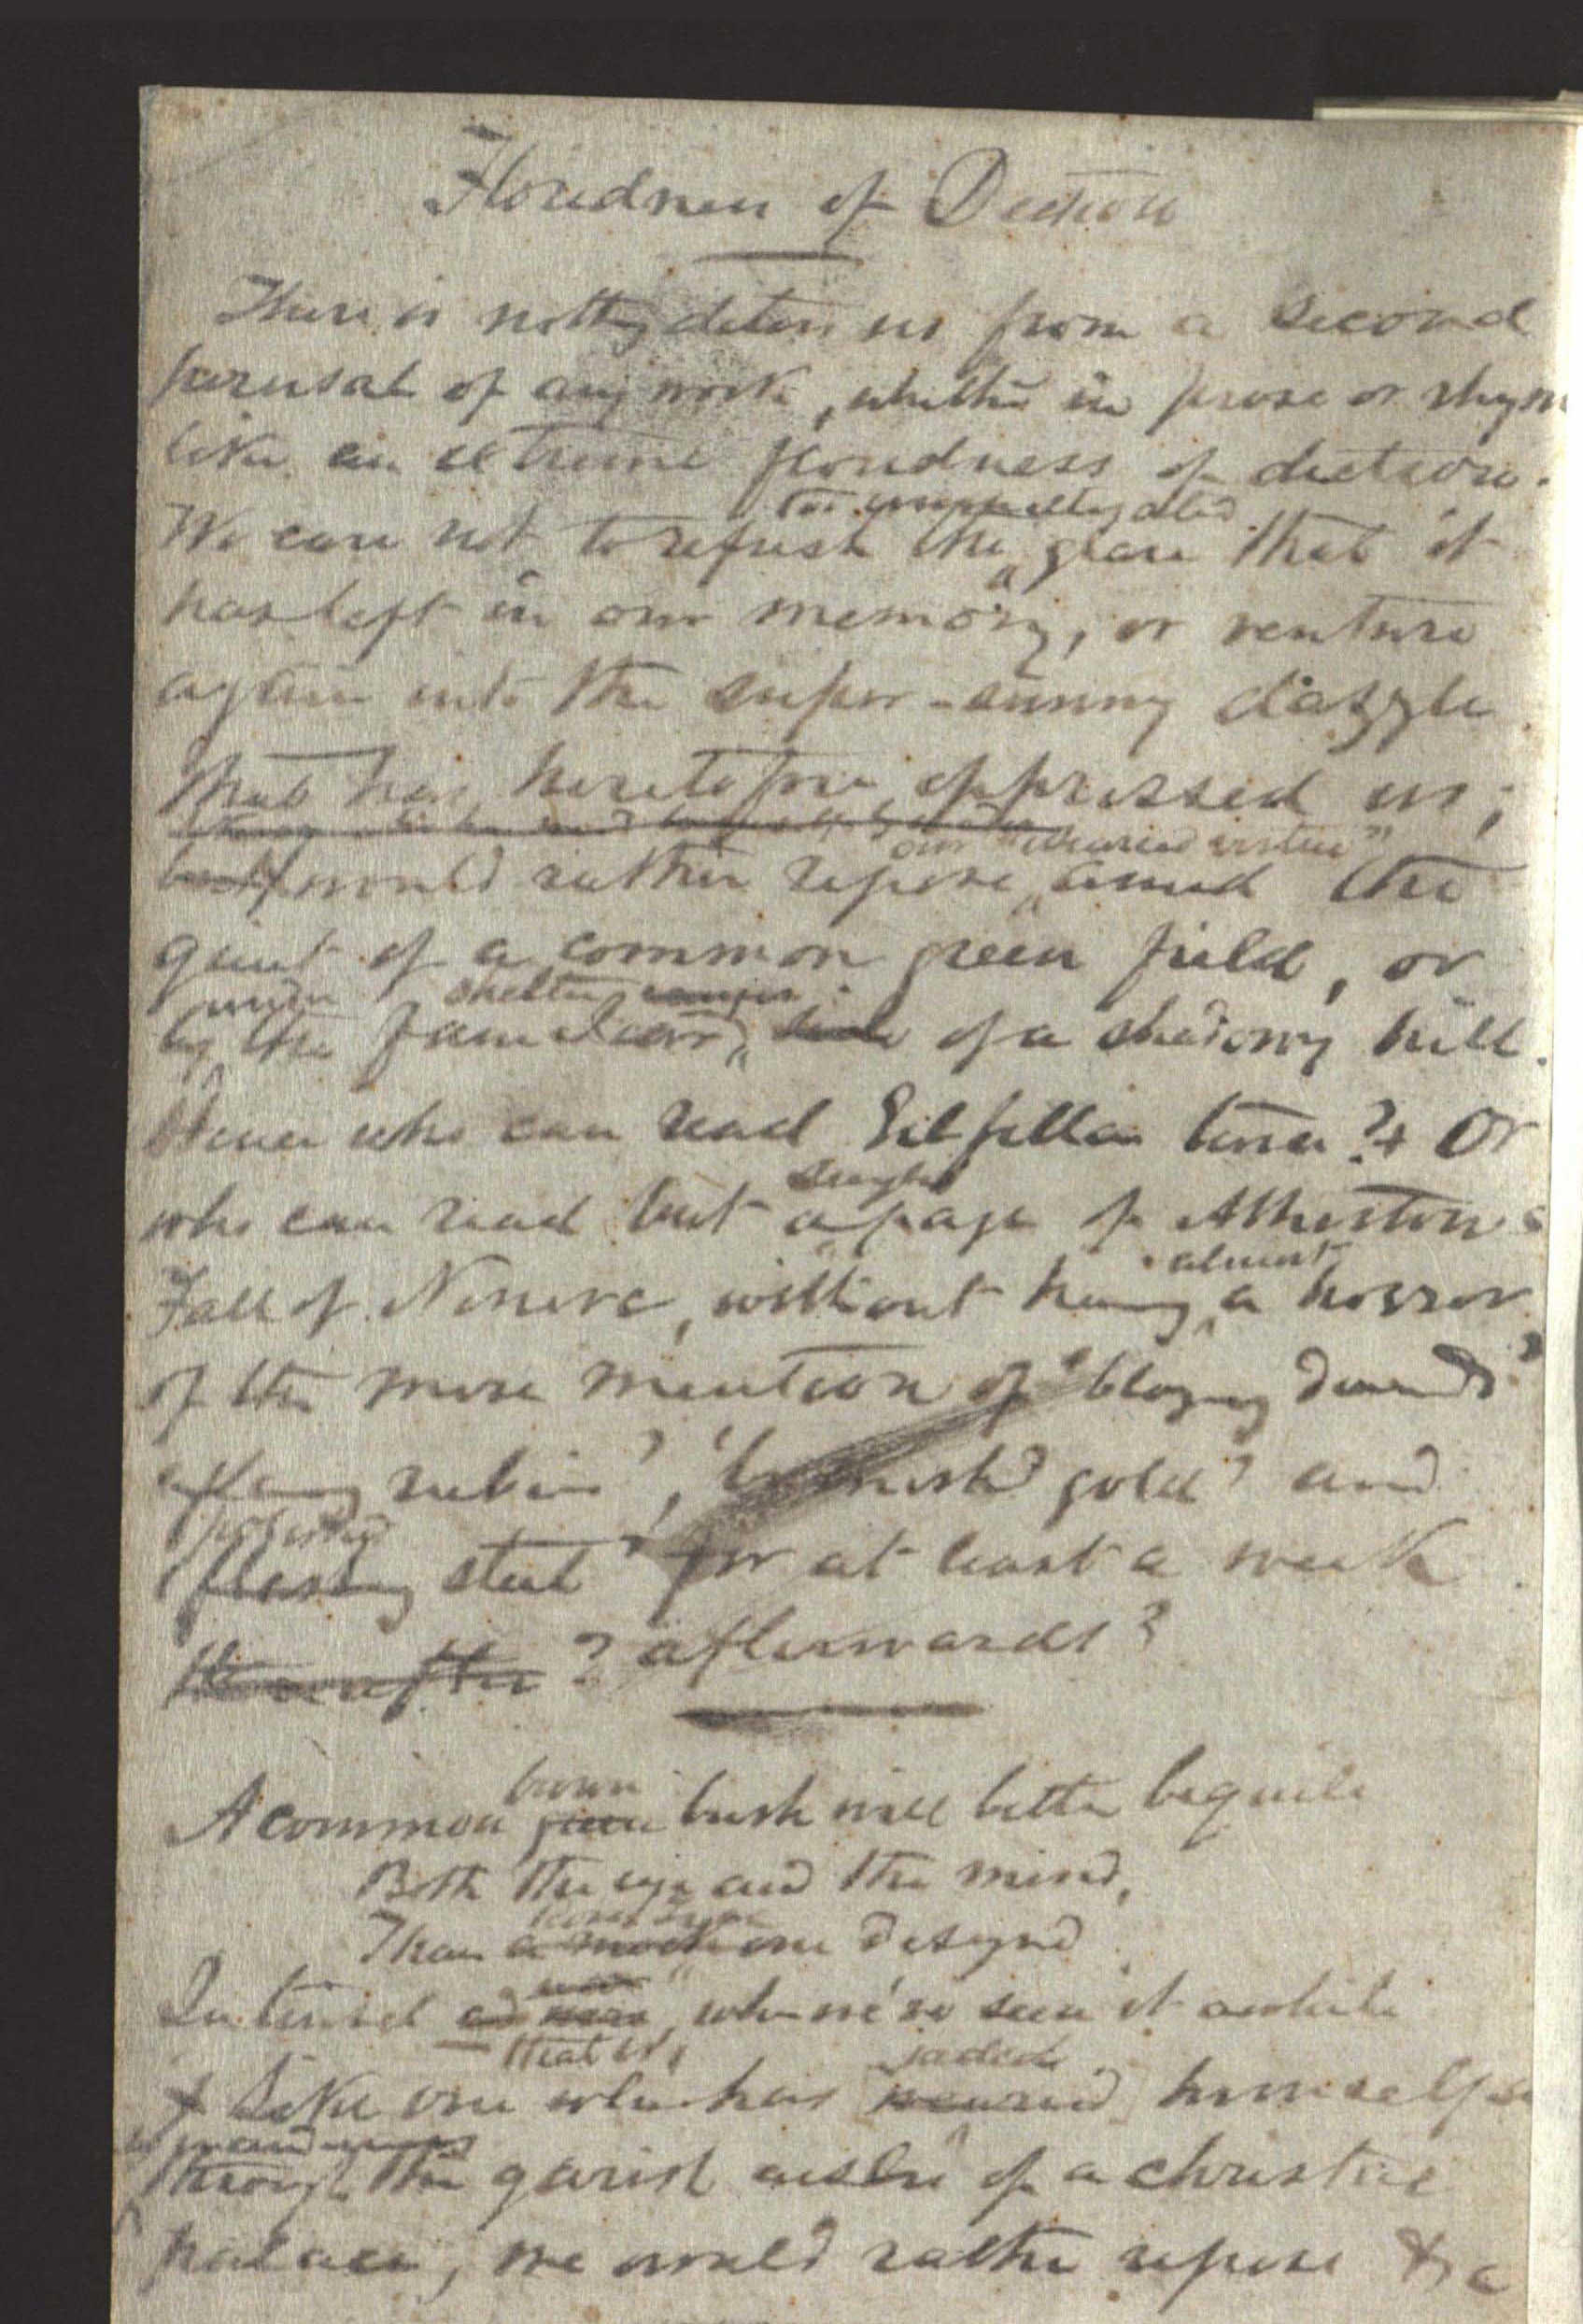 Floridness of Diction
There is nothg deters us from a second
perusal of any work, whether in prose or rhym
like an extreme floridness of diction.
too unmitigated
We care not to refresh the glare that it
has left in our memory, or venture
again into the super-sunny dazzle
that has heretofore oppressed us;
our "wearied virtue"
but would rather repose amid the
quiet of a common green field, or
under shelterg
by the familiar side of a shadowy hill.
Hence who can read Gilfillan twice? + Or
single
who can read but a page of Atherstone's
almost
Fall of Nineve, without having a horror
of the mere mention of "blazing diamonds"
rubies', 'burnish'd gold' and
polished
'flashing steel' for at least a week
thereafter ? afterwards?
brown
A common green bush will better beguile
Both the eye and the mind,
Than a mock one designd
In tinsel when we've seen it awhile
that is, jaded
+ Like one who has wearied himself
through the garish aisles of a christal
palace, we would rather repose &c